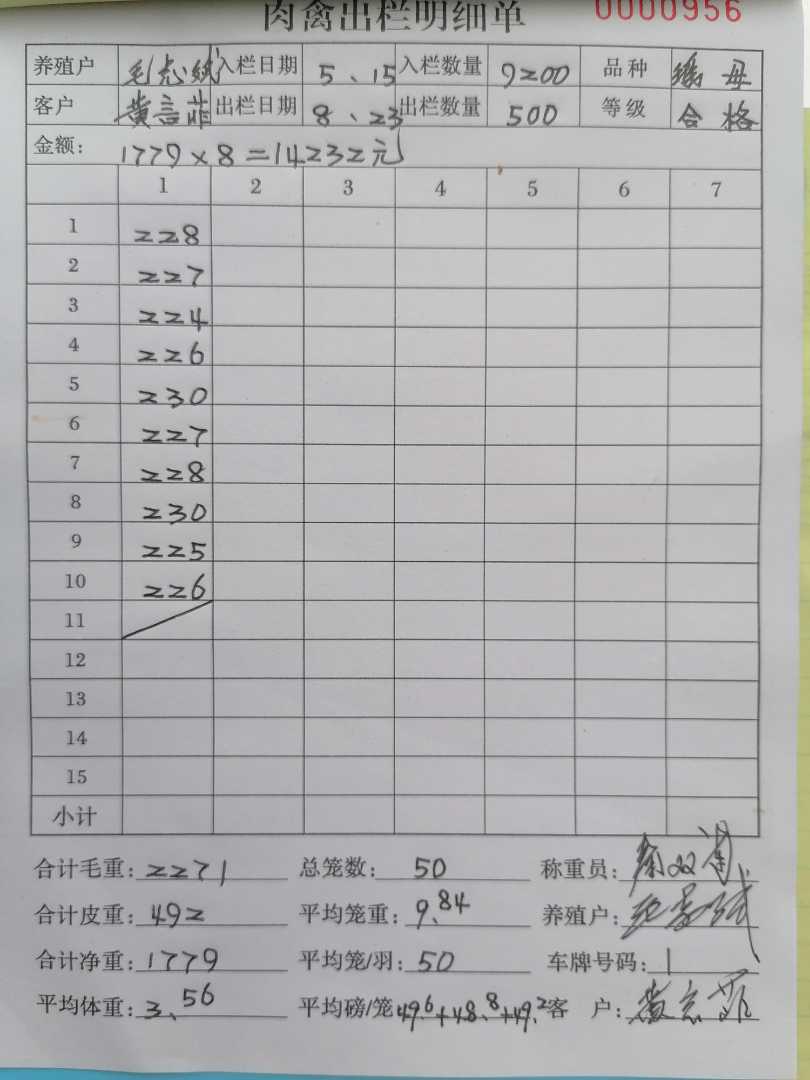 肉禽出栏明细单 0000956
养殖户 毛志斌 入栏日期 5、15 入栏数量 9200 品种 母
客户 黄言菲 出栏日期 8、23 出栏数量 500 等级 合格
金额: 1779×8=14232元
1 2 3 4 5 6 7
1 228
2 227
3 224
4 226
5 230
6 227
7 228
8 230
9 225
10 226
11
12
13
14
15
小计
合计毛重: 2271 总笼数: 50 称重员:
合计皮重: 492 平均笼重: 9.84 养殖户:
合计净重: 1779 平均笼/羽: 50 车牌号码: 1
平均体重: 3、56 平均磅/笼 49.6+48.8+49.2 客 户: 黄言菲